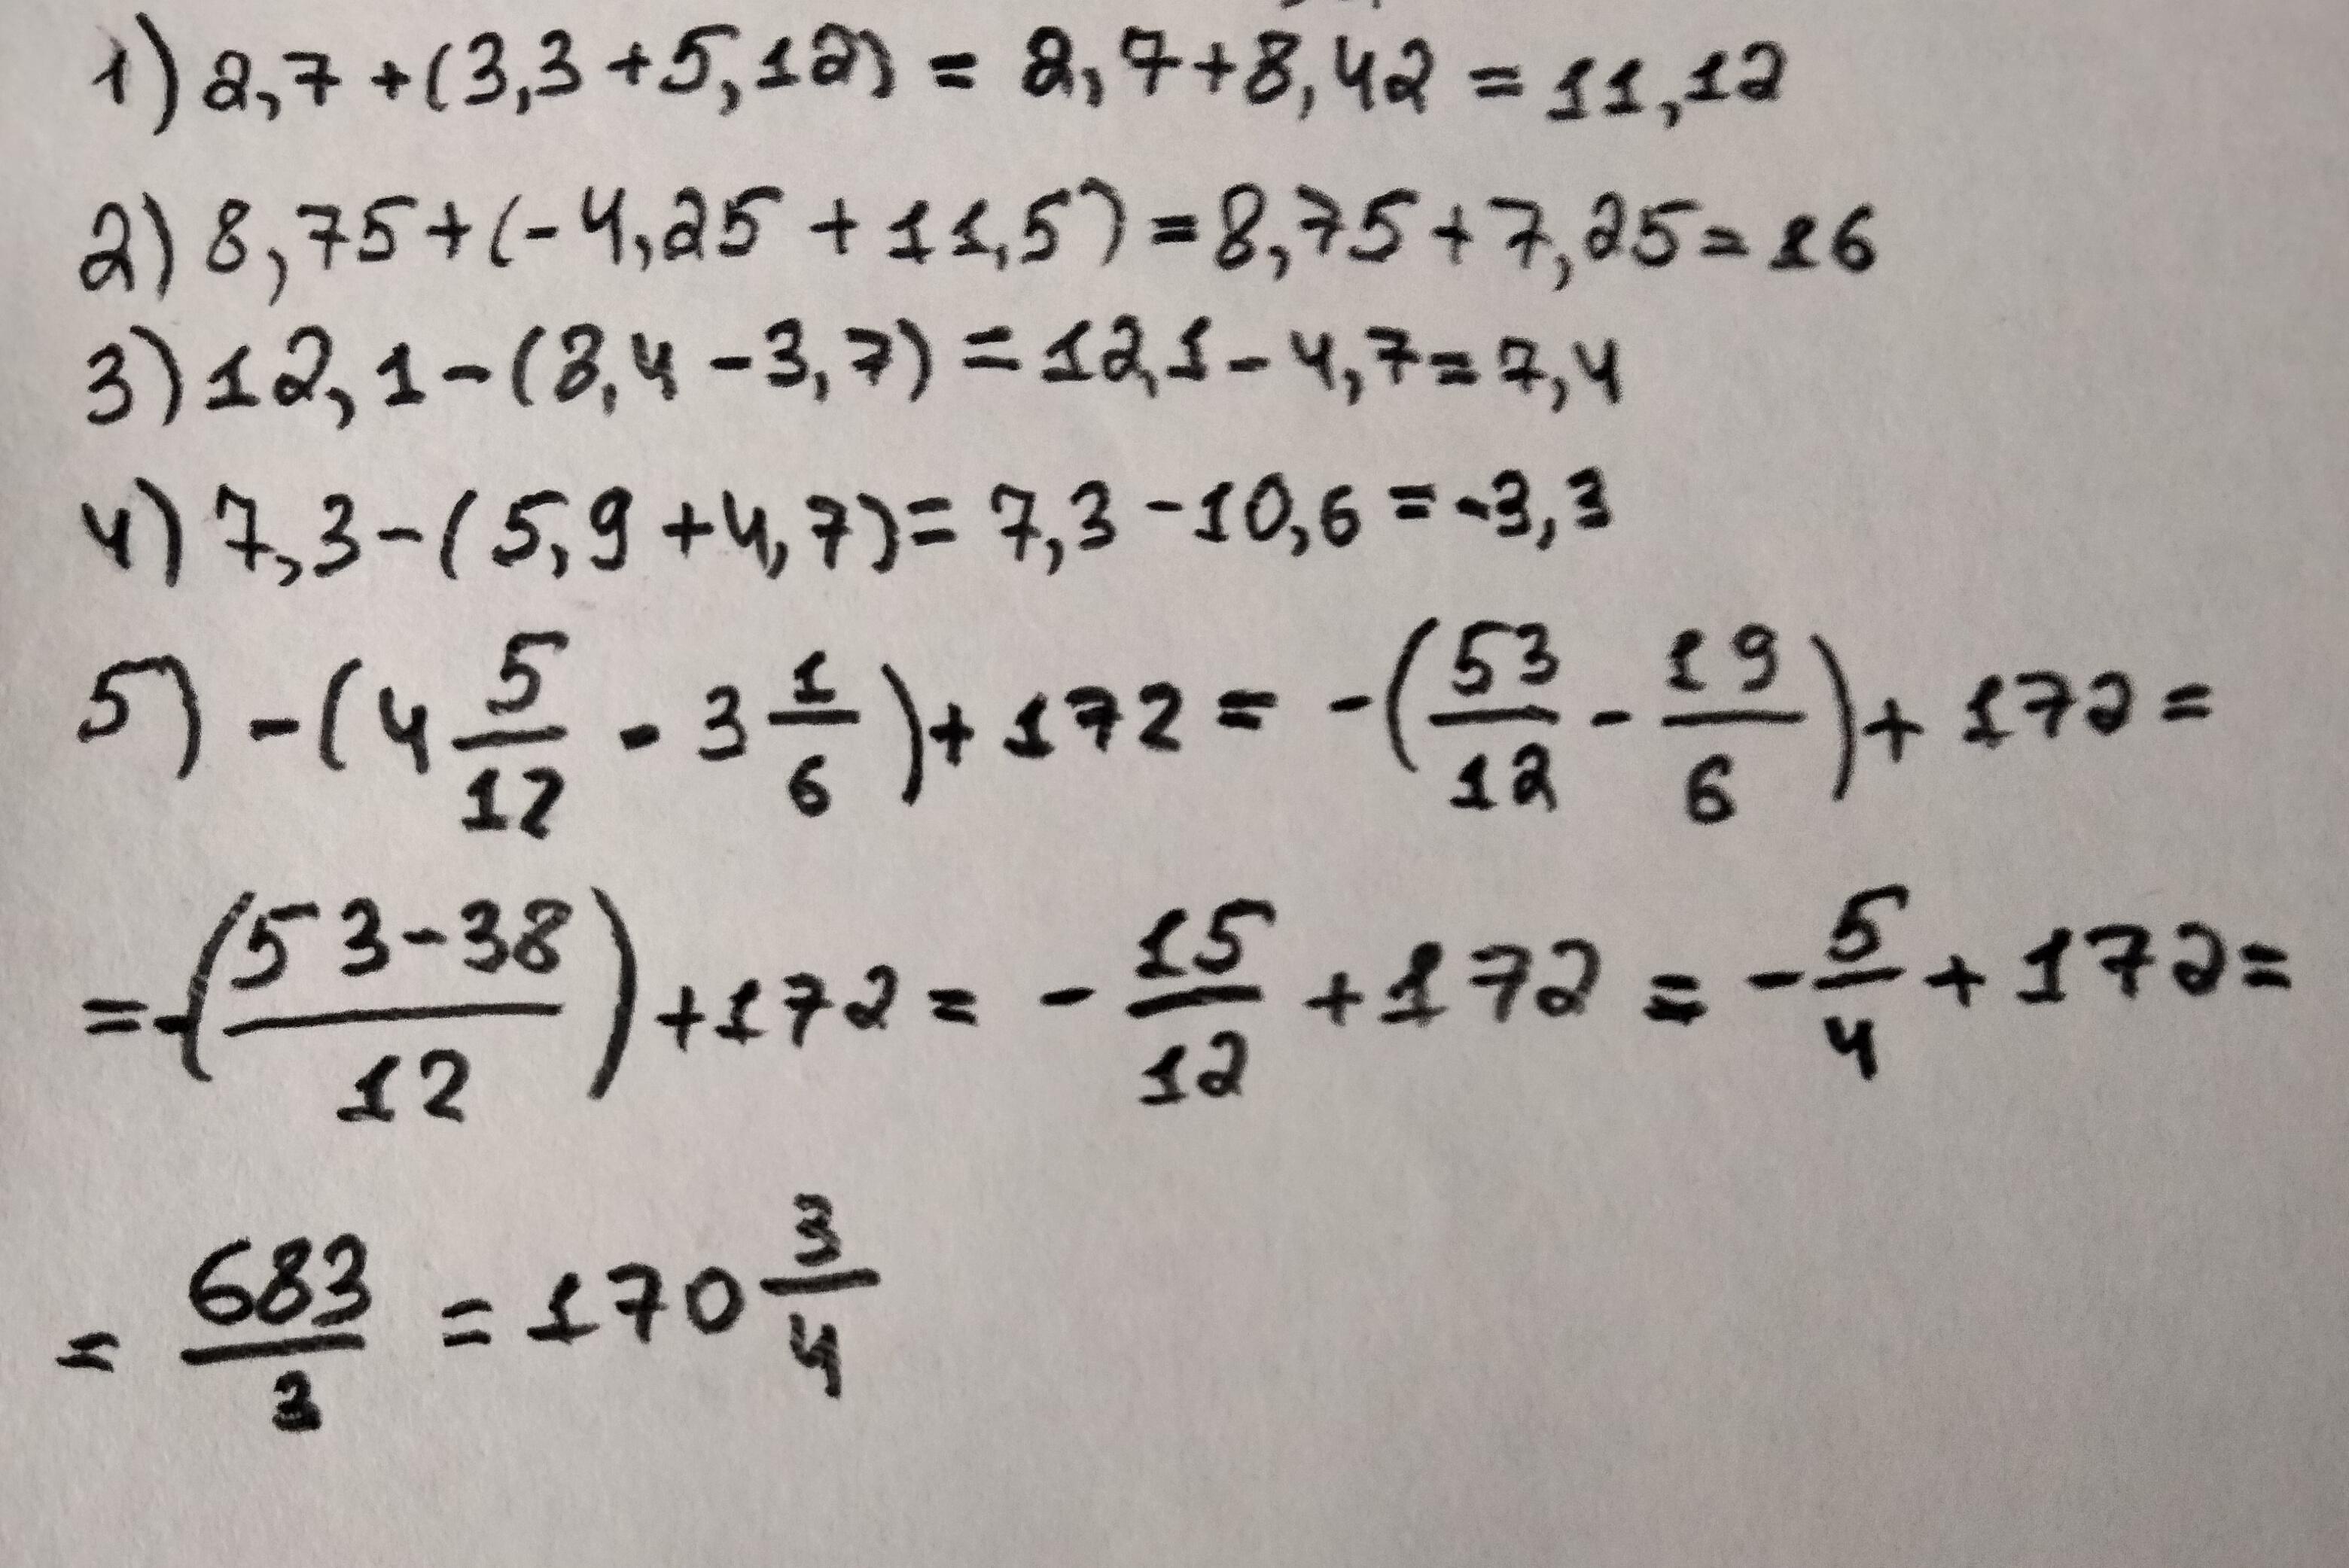 1) 2,7 + (3,3 + 5,12) = 2,7 + 8,42 = 11,12
2) 8,75 + (-4,25 + 11,5) = 8,75 + 7,25 = 16
3) 12,1 - (8,4 - 3,7) = 12,1 - 4,7 = 7,4
4) 7,3 - (5,9 + 4,7) = 7,3 - 10,6 = -3,3
5) -(4 5/12 - 3 1/6) + 172 = -(53/12 - 19/6) + 172 =
= -((53-38)/12) + 172 = -15/12 + 172 = -5/4 + 172 =
= 683/3 = 170 3/4